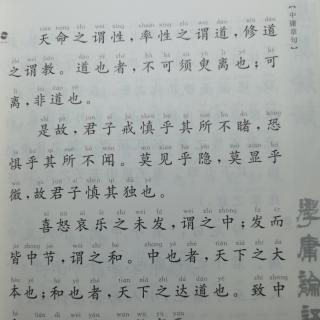 天命之谓性，率性之谓道，修道
之谓教。道也者，不可须臾离也；可
离，非道也。
是故，君子戒慎乎其所不睹，恐
惧乎其所不闻。莫见乎隐，莫显乎
微，故君子慎其独也。
喜怒哀乐之未发，谓之中；发而
皆中节，谓之和。中也者，天下之大
本也；和也者，天下之达道也。致中
【中庸章句】
學庸論語